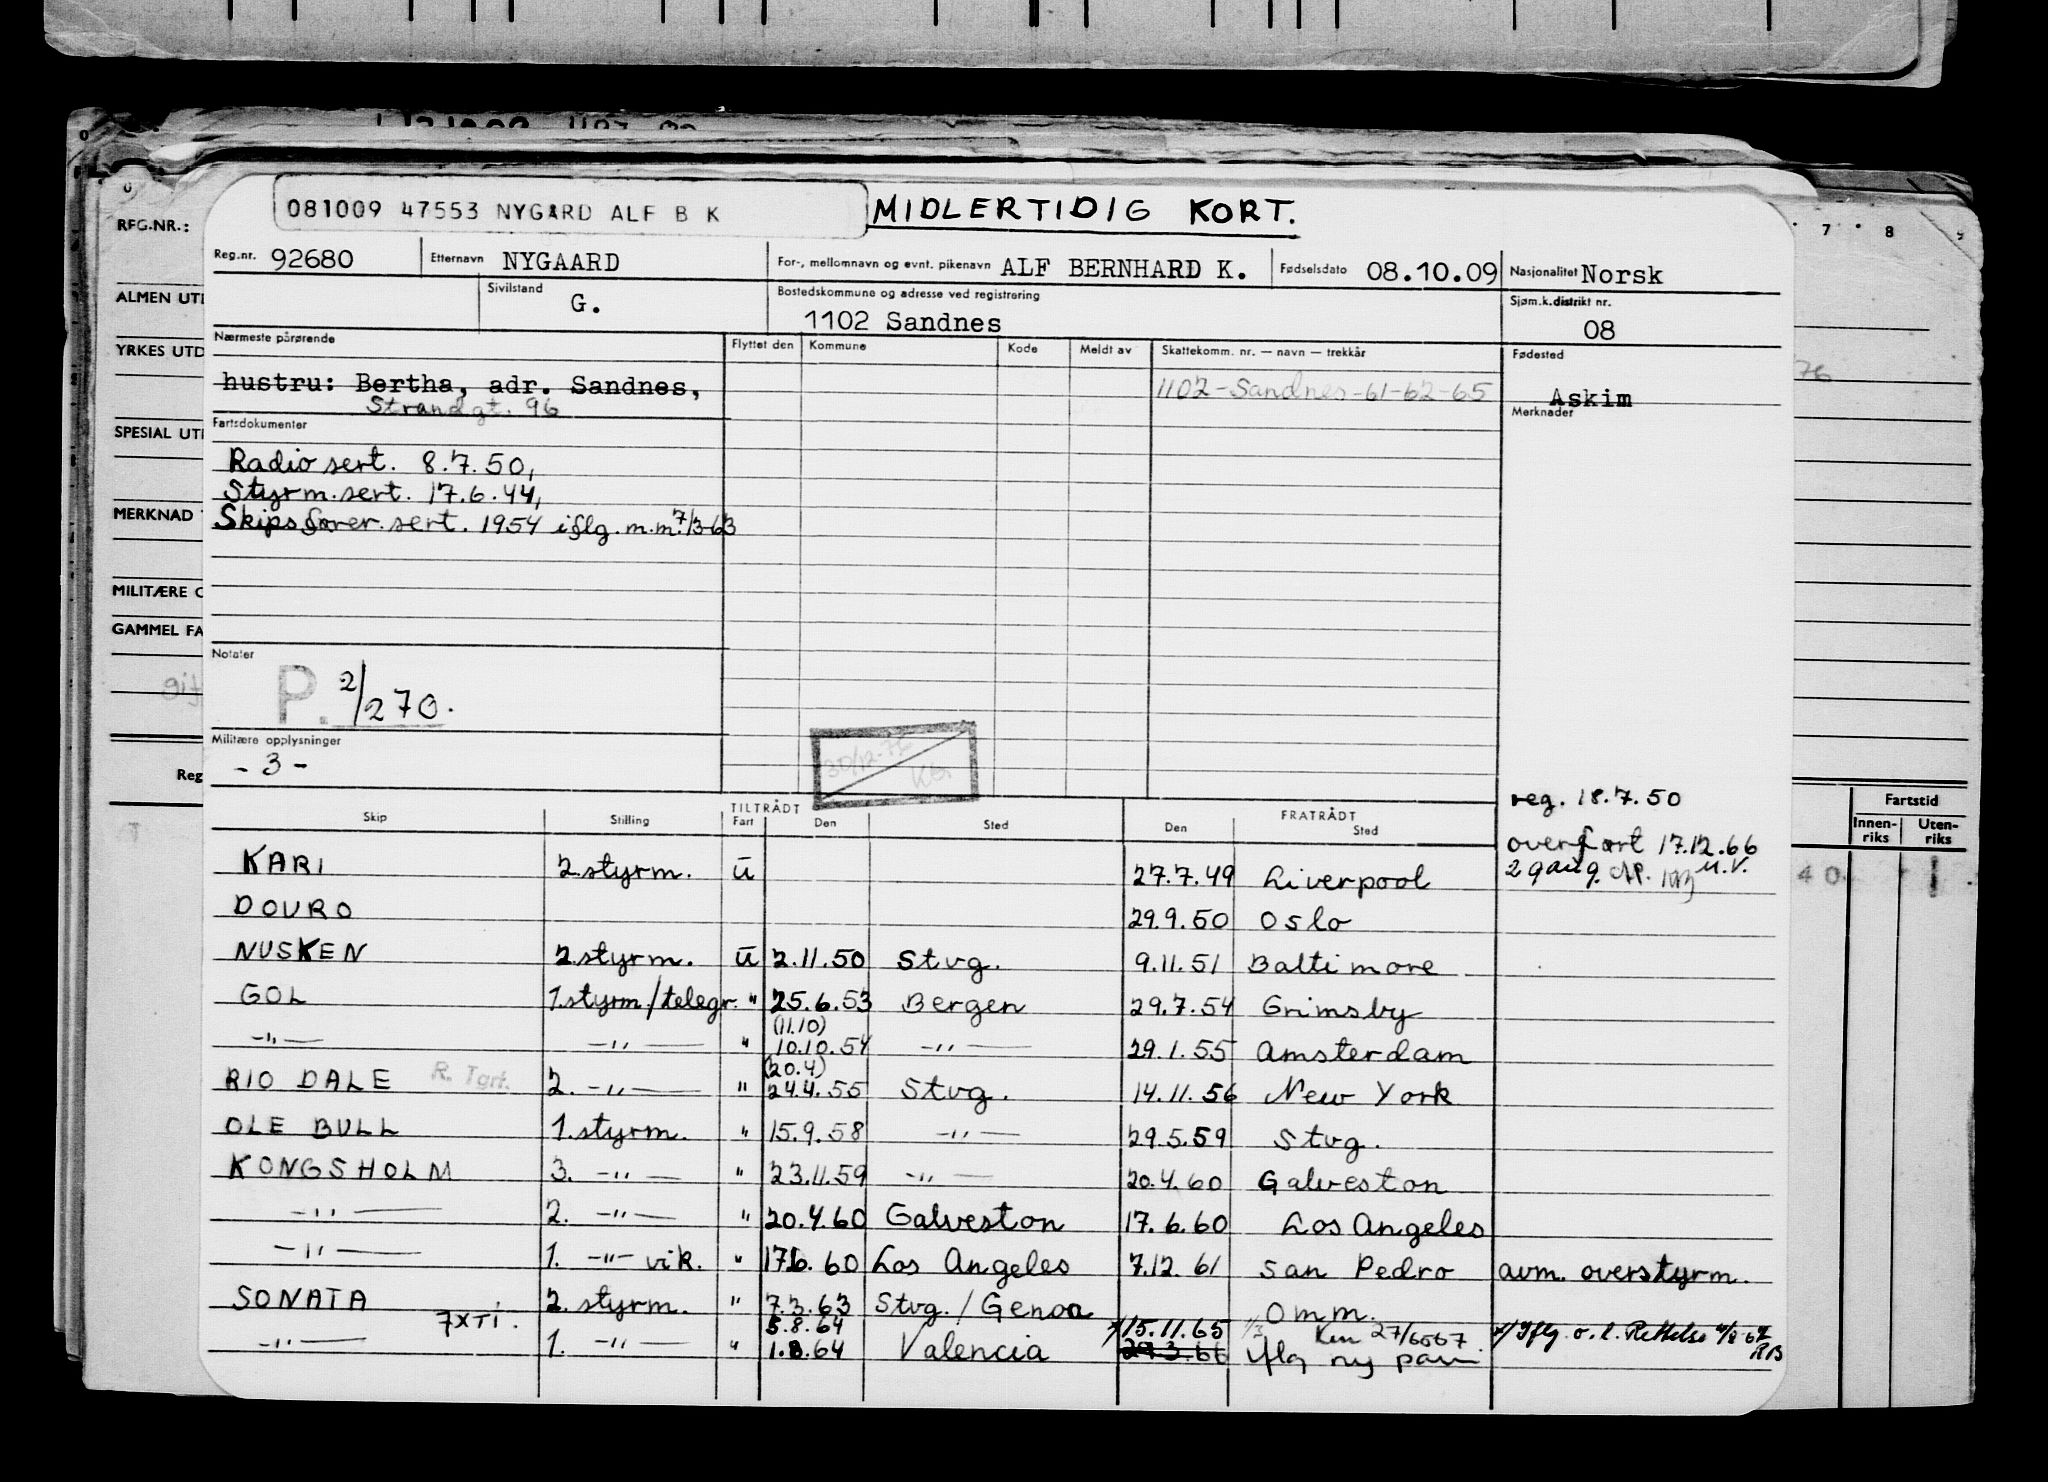 081009 47553 NYGÅRD ALF B K
MIDLERTIDIG KORT.
REG.NR.:
7 8 9
Reg.nr. 92680 Etternavn NYGAARD For-, mellomnavn og evnt. pikenavn ALF BERNHARD K. Fødselsdato 08.10.09 Nasjonalitet Norsk
ALMEN UTD
Sivilstand G. Bostedskommune og adresse ved registrering 1102 Sandnes Sjøm.k.distrikt nr. 08
Nærmeste pårørende Flyttet den Kommune Kode Meldt av Skattekomm. nr. — navn — trekkår Fødested
YRKES UTD
hustru: Bertha, adr. Sandnes, 1102-Sandnes-61-62-65 Askim
Strandgt. 96
Merknader
Fartsdokumenter
SPESIAL UTD
Radio sert. 8.7.50,
Styrm.sert. 17.6.44,
MERKNAD
Skipsfører.sert. 1954 iflg. m.m. 7/3-63
MILITÆRE O
GAMMEL FA
Notater
gif
P. 2/270.
Militære opplysninger
- 3 -
30/12-76
Reg
reg. 18.7.50
overført 17.12.66
2 gang. u.v.
Fartstid
Innen-riks Uten-riks
TILTRÅDT FRATRÅDT
Skip Stilling Fart Den Sted Den Sted
KARI 2.styrm. U 27.7.49 Liverpool
DOURO 29.9.50 Oslo
NUSKEN 2.styrm. U 2.11.50 Stvg. 9.11.51 Baltimore
GOL 1.styrm./telegr. " 25.6.53 Bergen 29.7.54 Grimsby
(11.10)
—"— —"— " 10.10.54 —"— 29.1.55 Amsterdam
(20.4)
RIO DALE R. Tgrf. 2. —"— " 24.4.55 Stvg. 14.11.56 New York
OLE BULL 1.styrm. " 15.9.58 —"— 29.5.59 Stvg.
KONGSHOLM 3. —"— " 23.11.59 —"— 20.4.60 Galveston
—"— 2. —"— " 20.4.60 Galveston 17.6.60 Los Angeles
—"— 1. —"— vik. " 17.6.60 Los Angeles 7.12.61 San Pedro avm. overstyrm.
SONATA 2. styrm. " 7.3.63 Stvg./Genoa Omm.
7XTI. 5.8.64 x/15.11.65 27/6567 x/Iflg. o.l. Rettelse RB
—"— 1. —"— " 1.8.64 Valencia 29.3.66 iflg ny